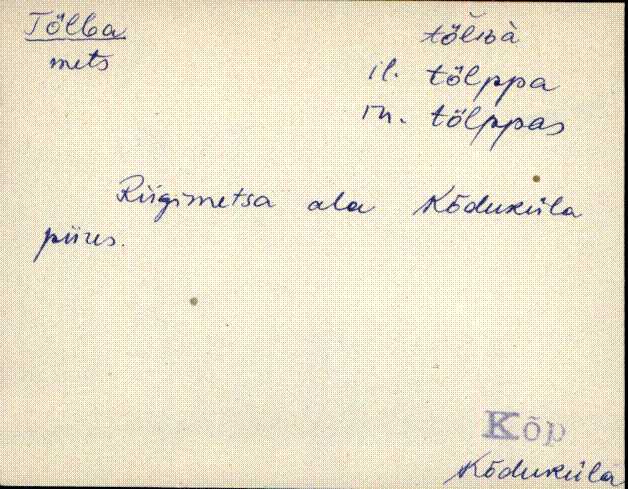 Tõlba
mets
tõlbà
il. tõlppa
in. tõlppas
Riigimetsa ala Kõduküla
piires.
Kõp
Kõduküla